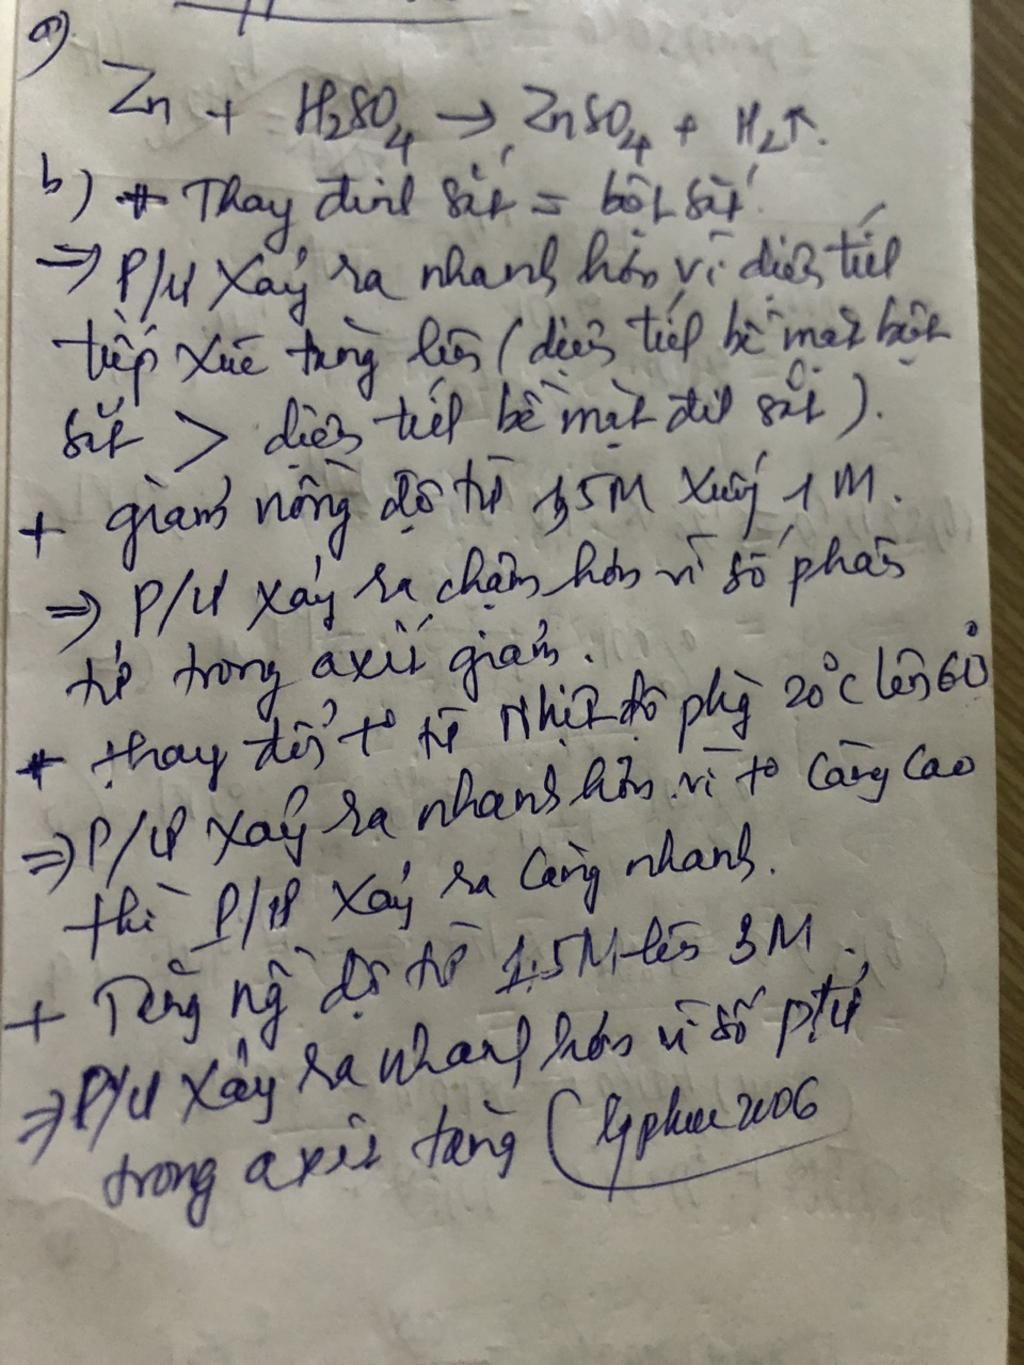 a)
Zn + H₂SO₄ → ZnSO₄ + H₂↑.
b) * Thay đinh sắt = bột sắt.
=> P/Ư xảy ra nhanh hơn vì diện tích
tiếp xúc tăng lên (diện tích bề mặt bột
sắt > diện tích bề mặt đinh sắt).
+ giảm nồng độ từ 1,5M xuống 1M.
=> P/Ư xảy ra chậm hơn vì số phân
tử trong axit giảm.
* thay đổi t° từ nhiệt độ phg 20°C lên 60°
=> P/Ư xảy ra nhanh hơn vì t° càng cao
thì P/Ư xảy ra càng nhanh.
+ Tăng ng độ từ 1,5M lên 3M.
=> P/Ư xảy ra nhanh hơn vì số ptử
trong axit tăng (lyphuc2006